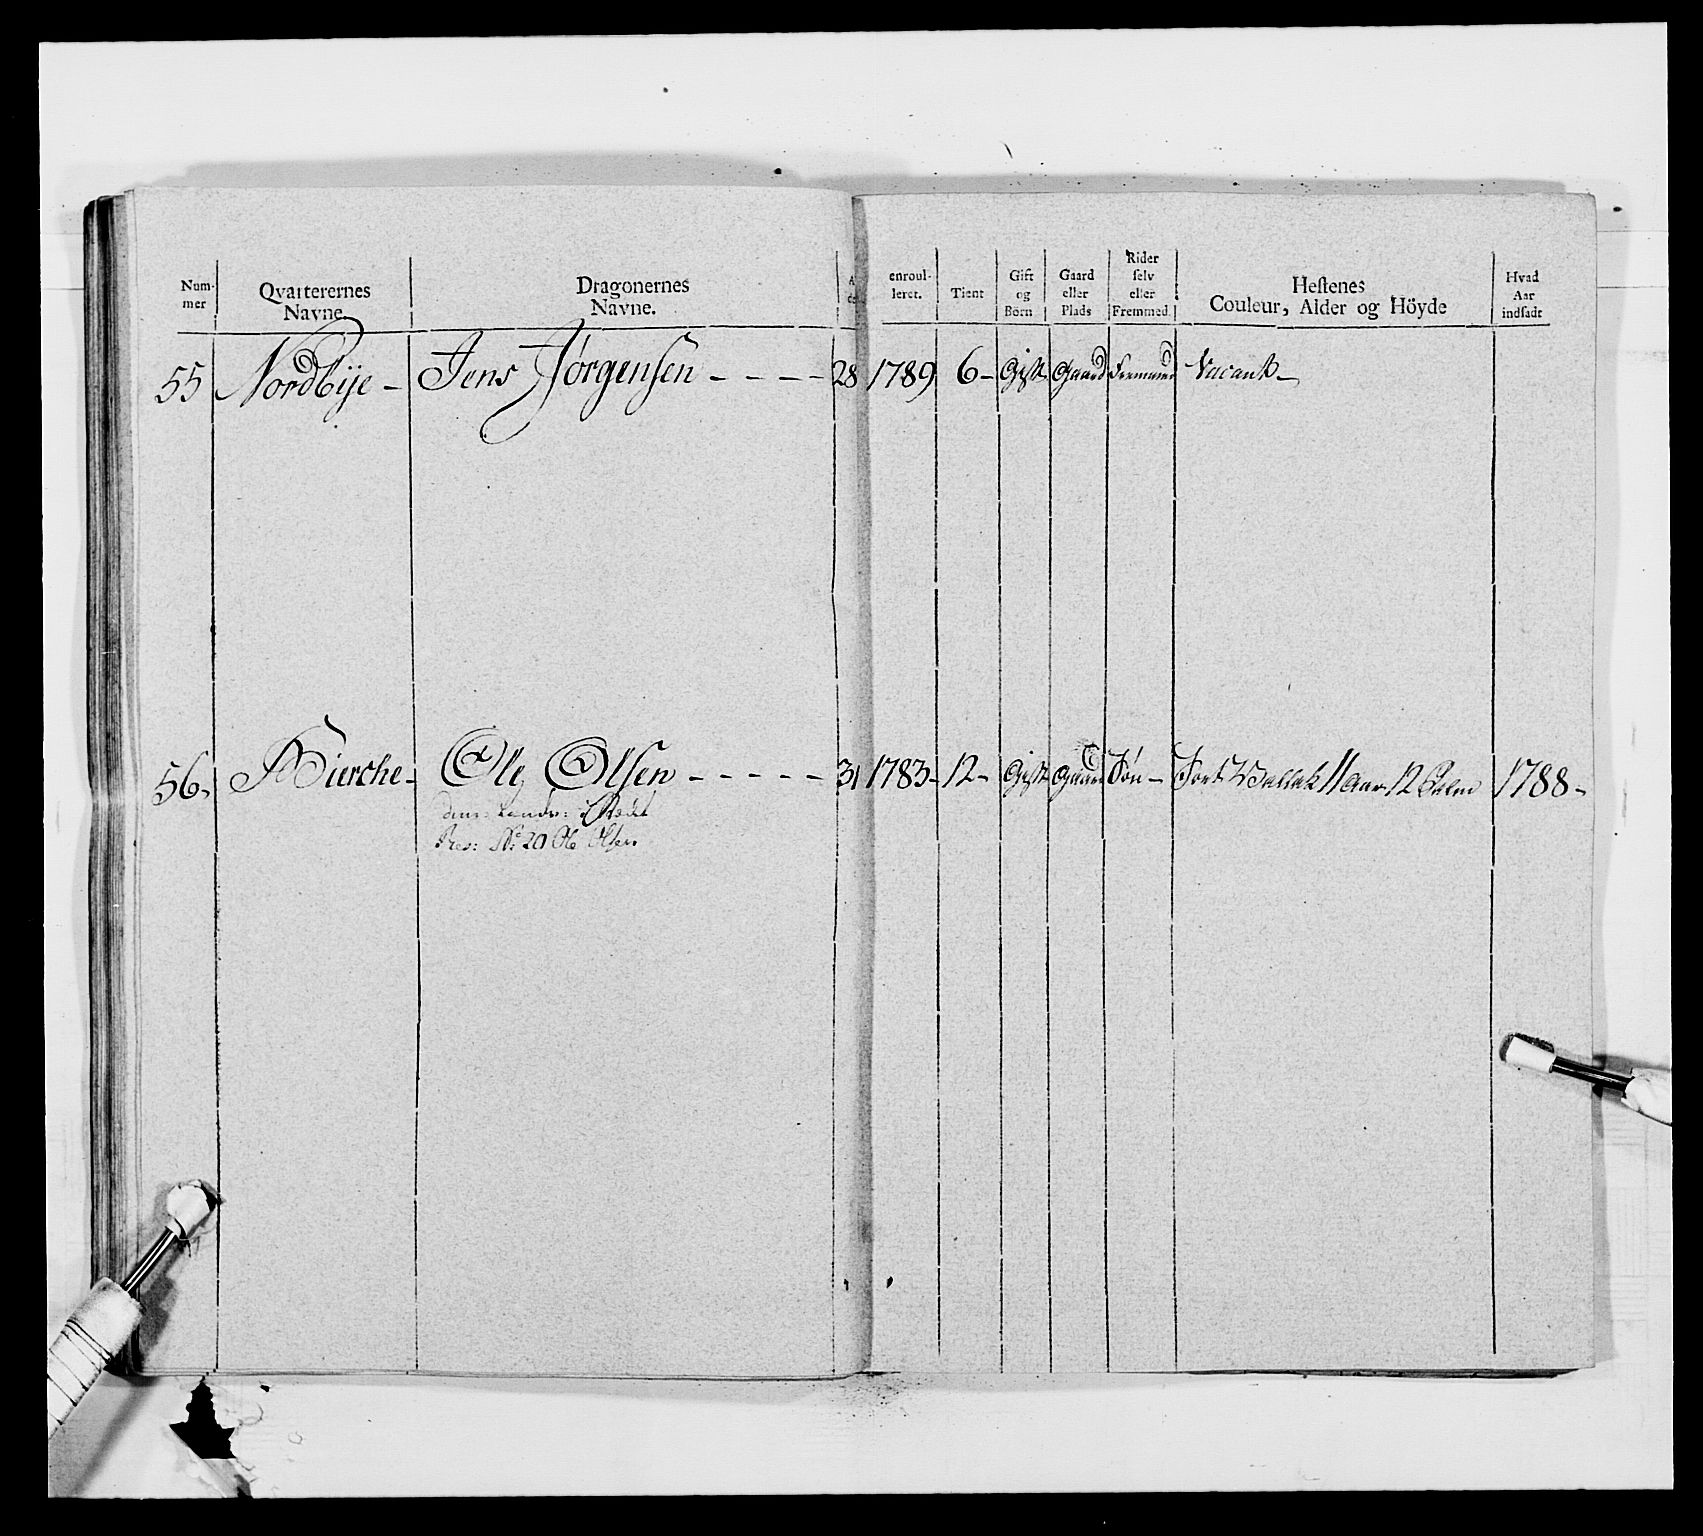 Num-mer | Qvarterernes Navne. | Dragonernes Navne. | A | enroul-leret. | Tient | Gift og Börn | Gaard eller Plads | Rider selv eller Fremmed. | Hestenes Couleur, Alder og Höyde | Hvad Aar indsadt
55 | Nordbije - | Jens Jørgensen - - - - | 28 | 1789 | 6 - | Gift | Gaard | Fremmed | Vacant -
56. | Bierche - | Ole Olsen - - - - - | 31 | 1783 - | 12 - | Gift | Gaard | Søn - | Sort Wallak 11 Aar 12 Palm | 1788 -
Res: No: 20 Ole Olsen